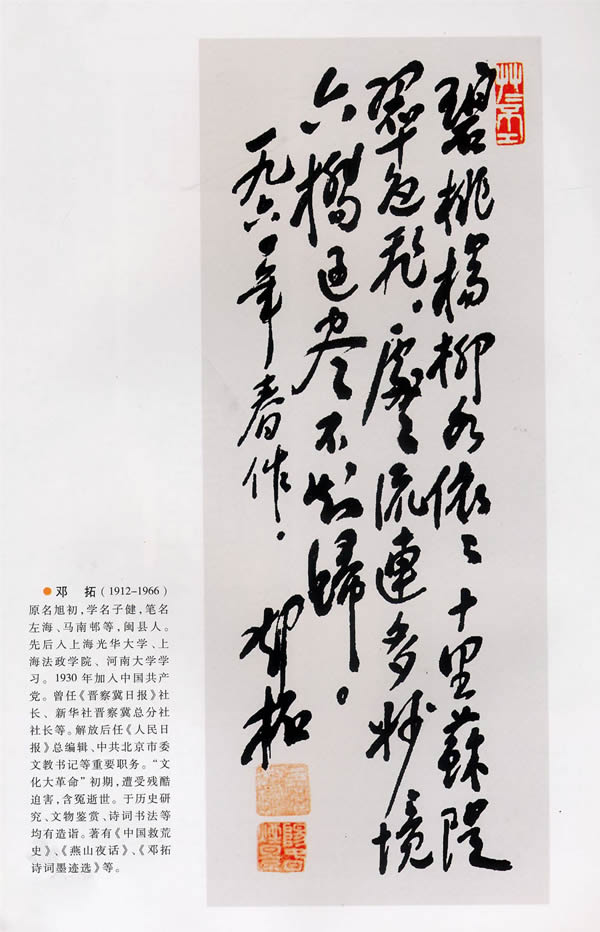 碧桃楊柳水依〻十里蘇隄
翠色飛。處〻流連多妙境
六橋過尽不知歸。
一九六一年春作。
鄧拓
●邓　拓(1912-1966)
原名旭初，学名子健，笔名
左海、马南邨等，闽县人。
先后入上海光华大学、上
海法政学院、河南大学学
习。1930年加入中国共产
党。曾任《晋察冀日报》社
长、新华社晋察冀总分社
社长等。解放后任《人民日
报》总编辑、中共北京市委
文教书记等重要职务。“文
化大革命”初期，遭受残酷
迫害，含冤逝世。于历史研
究、文物鉴赏、诗词书法等
均有造诣。著有《中国救荒
史》、《燕山夜话》、《邓拓
诗词墨迹选》等。